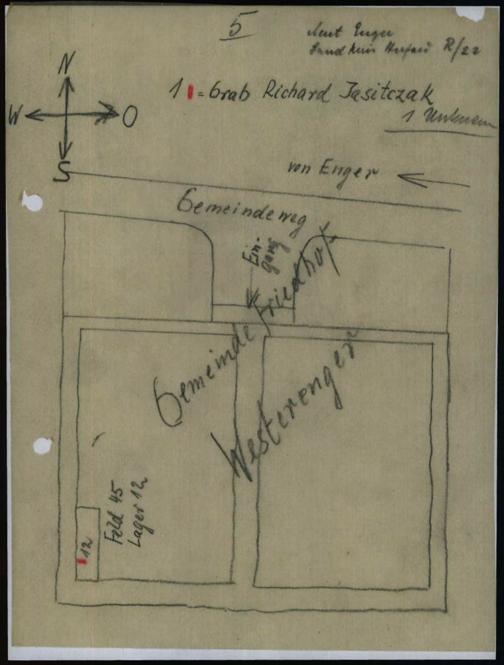 5
Amt Enger
Landkreis Herford R/22
N
W O
S
1 = Grab Richard Jasitczak
1 Unknown
von Enger
Gemeindeweg
Ein-
gang
Gemeinde Friedhof
Westerenger
Feld 45
Lager 12
12